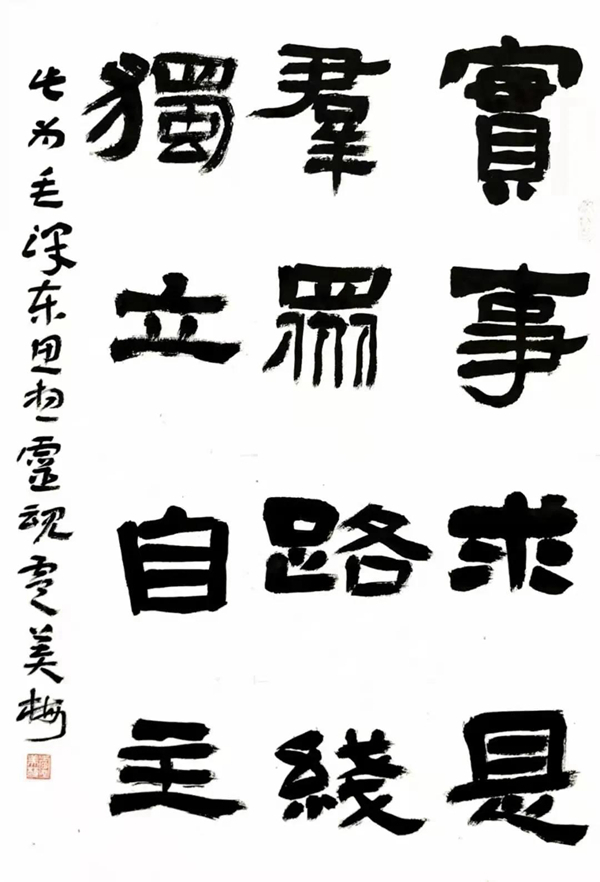 實事求是
羣眾路綫
獨立自主
此为毛泽东思想靈魂美梅